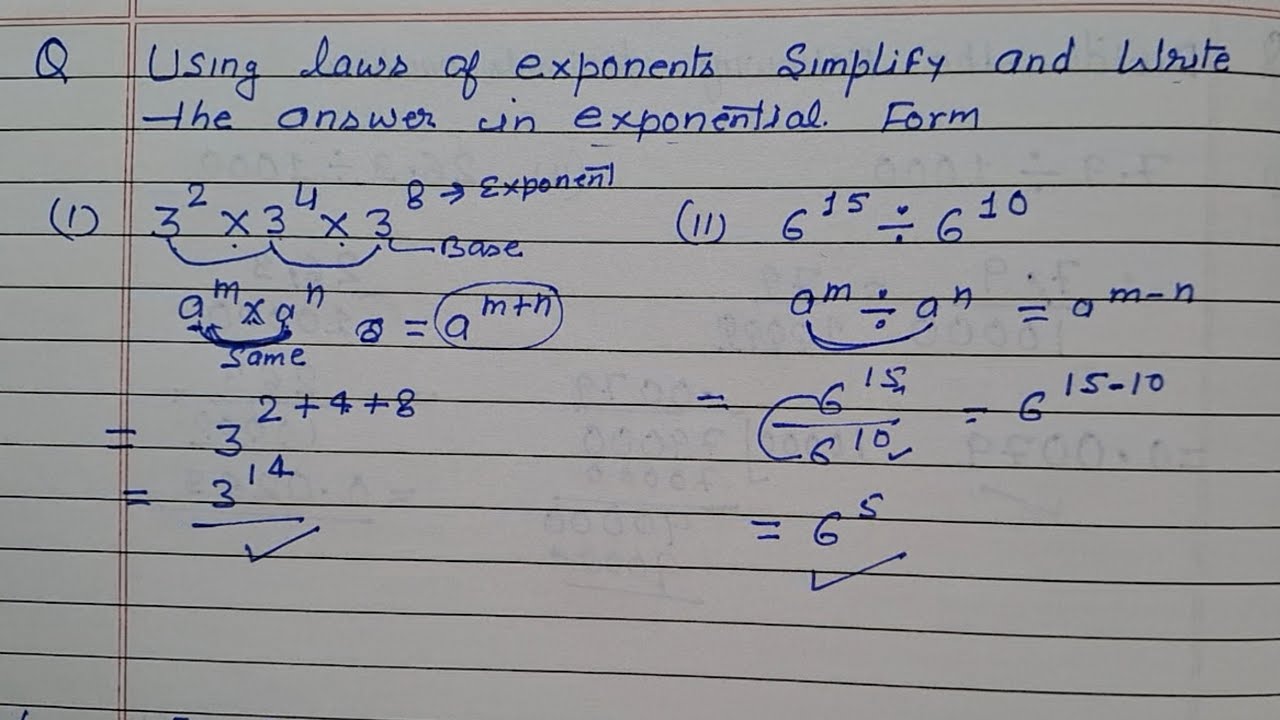 Q Using laws of exponents Simplify and Write
the answer in exponential. Form
(I) 3^2 × 3^4 × 3^8 → Exponent
Base
a^m × a^n = a^{m+n}
Same
= 3^{2+4+8}
= 3^{14}
(II) 6^{15} ÷ 6^{10}
a^m ÷ a^n = a^{m-n}
= 6^{15} / 6^{10} = 6^{15-10}
= 6^5